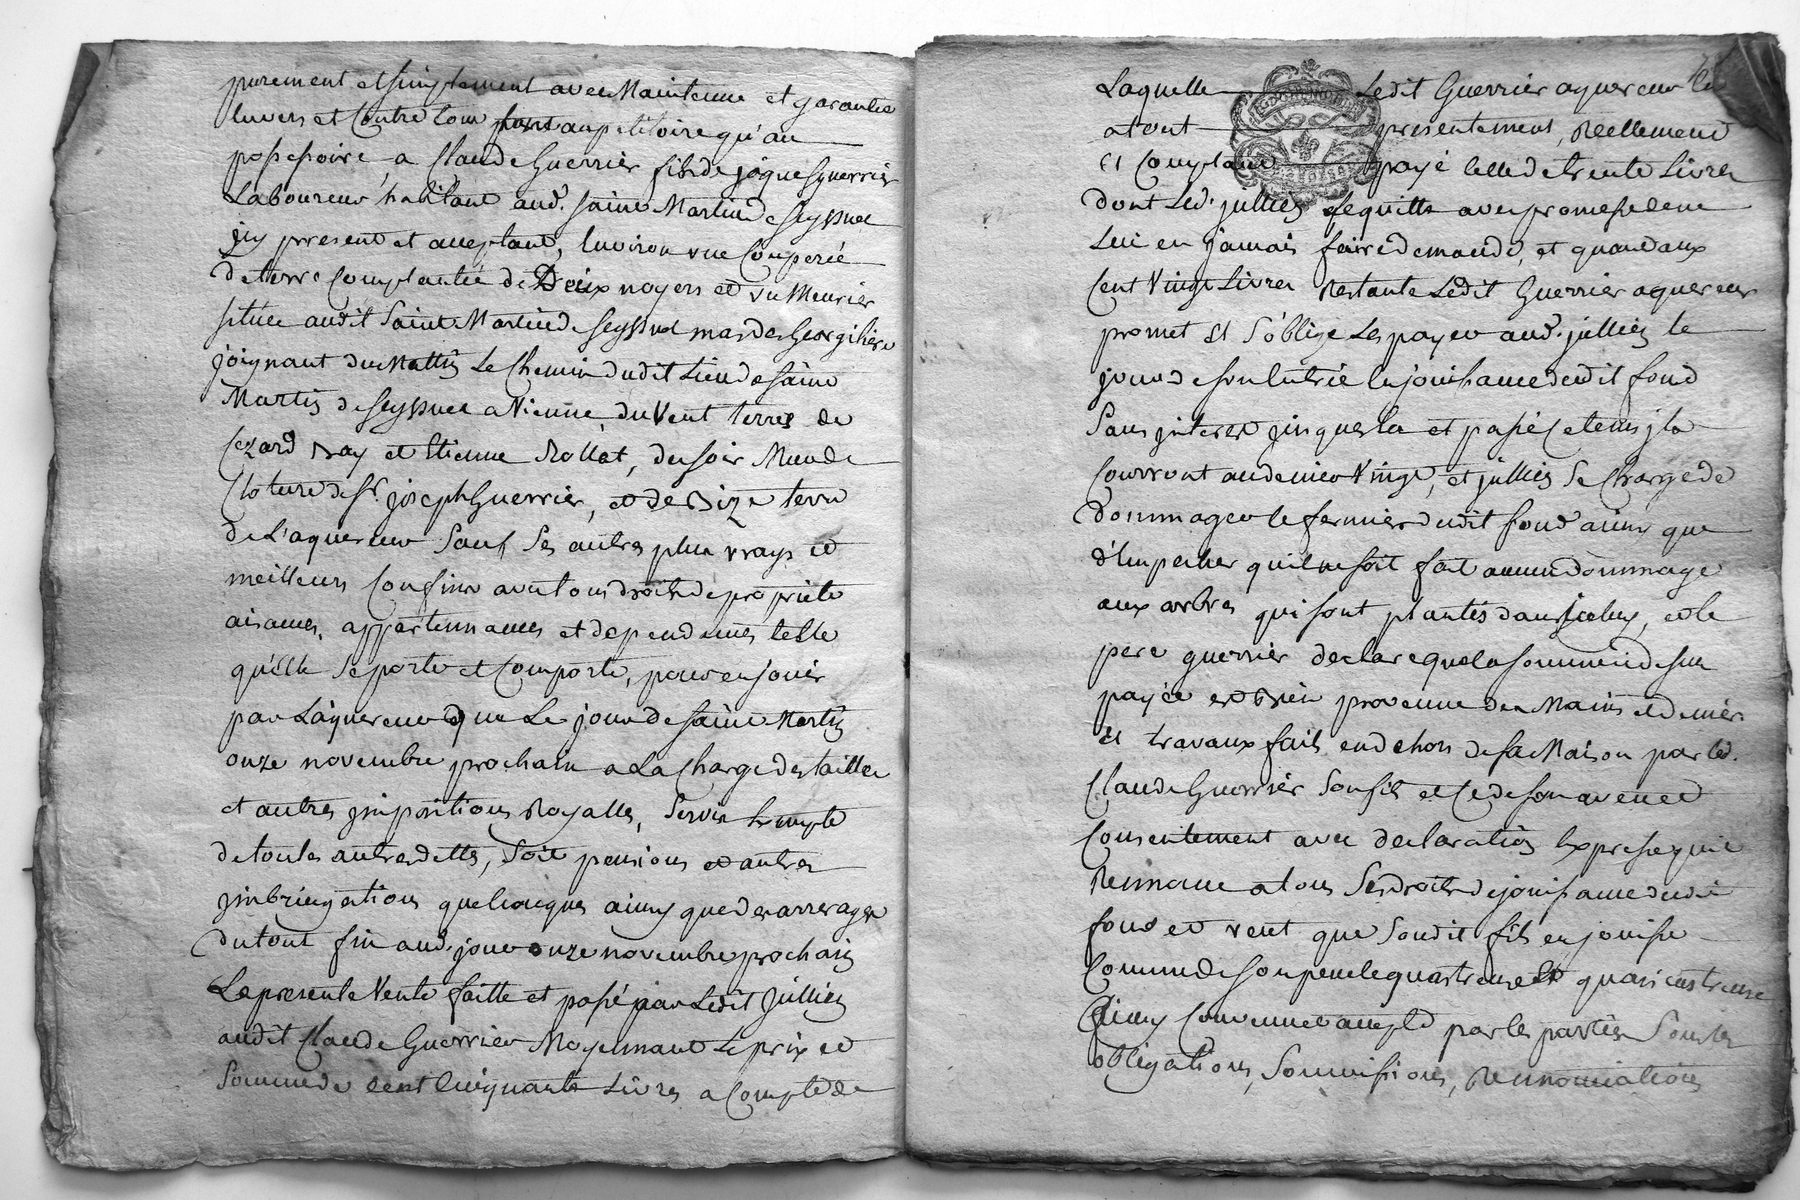 purement et simplement avec Maintenue et garantie
Envers et Contre tous tant au petitoire qu'au
possessoire, a Claude Guerrier fils de joques guerrier
Laboureur habitant aud. saint Martin de seyssuel
jcy present et aceptant, Environ une Couperée
de terre Complantée de Deux noyers et un Meurier
située audit Saint Martin de seyssuel mas de
joignant du Mattin Le Chemin dudit Lieu de saint
Martin de seyssuel a Vienne, du Vent terres de
Cezard Bay et Etienne Rollat, du soir Mur de
Cloture de Sr. joseph Guerrier, et de Bize terre
de L'aquereur Sauf Ses autres plus vrays et
meilleurs Confins avec tous droits de proprieté
aisances, appartenances et dependances telle
qu'elle Se porte et Comporte, pour en jouir
par Laquereur que Le jour de saint Martin
onze novembre prochain a La Charge des tailles
et autres jmpositions Royalles, Servis Exempte
de toutes autres dettes, soit pensions et autres
jmbriugations quelconques ainsy que des arrerages
du tout fin aud. jour onze novembre prochain
La presente Vente faitte et passé par Ledit Jullien
audit Claude Guerrier Moyennant Le prix et
Somme de Cent Cinquante Livres a Compte de
Laquelle Ledit Guerrier aquereur
a tout presentement, Réellement
et Comptant payé celle de trente Livres
dont Led. jullien se quitte avec promesse de ne
Lui en jamais faire demande, et quand aux
Cent Vingt Livres Restante Ledit Guerrier aquereur
promet Et S'oblige Les payer aud. jullien le
jour de son Entrée En jouissance dudit fond
Sans jnteret jusques la et passé Ce tems jls
Courront au denier Vingt, et jullien Se Charge de
dommager le fermier dudit fond ainsy que
d'Empecher qu'il ne soit fait aucun dommage
aux arbres qui sont plantés dans jceluy, et le
pere guerrier declare que la somme cy dessus
payée est Bien provenue des Mains et deniers
Et travaux fait en dehors de sa Maison par led.
Claude Guerrier Son fils et Ce de son aveu et
Consentement avec declaration Expresse qu'il
Renonce a tous Ses droits de jouissance dudit
fond et veut que Sondit fils en jouisse
Comme de son pecule quastrense et quasi castrense
Ainsy Convenu et accepté par les parties Sous les
obligations, Soumissions, Renonciations